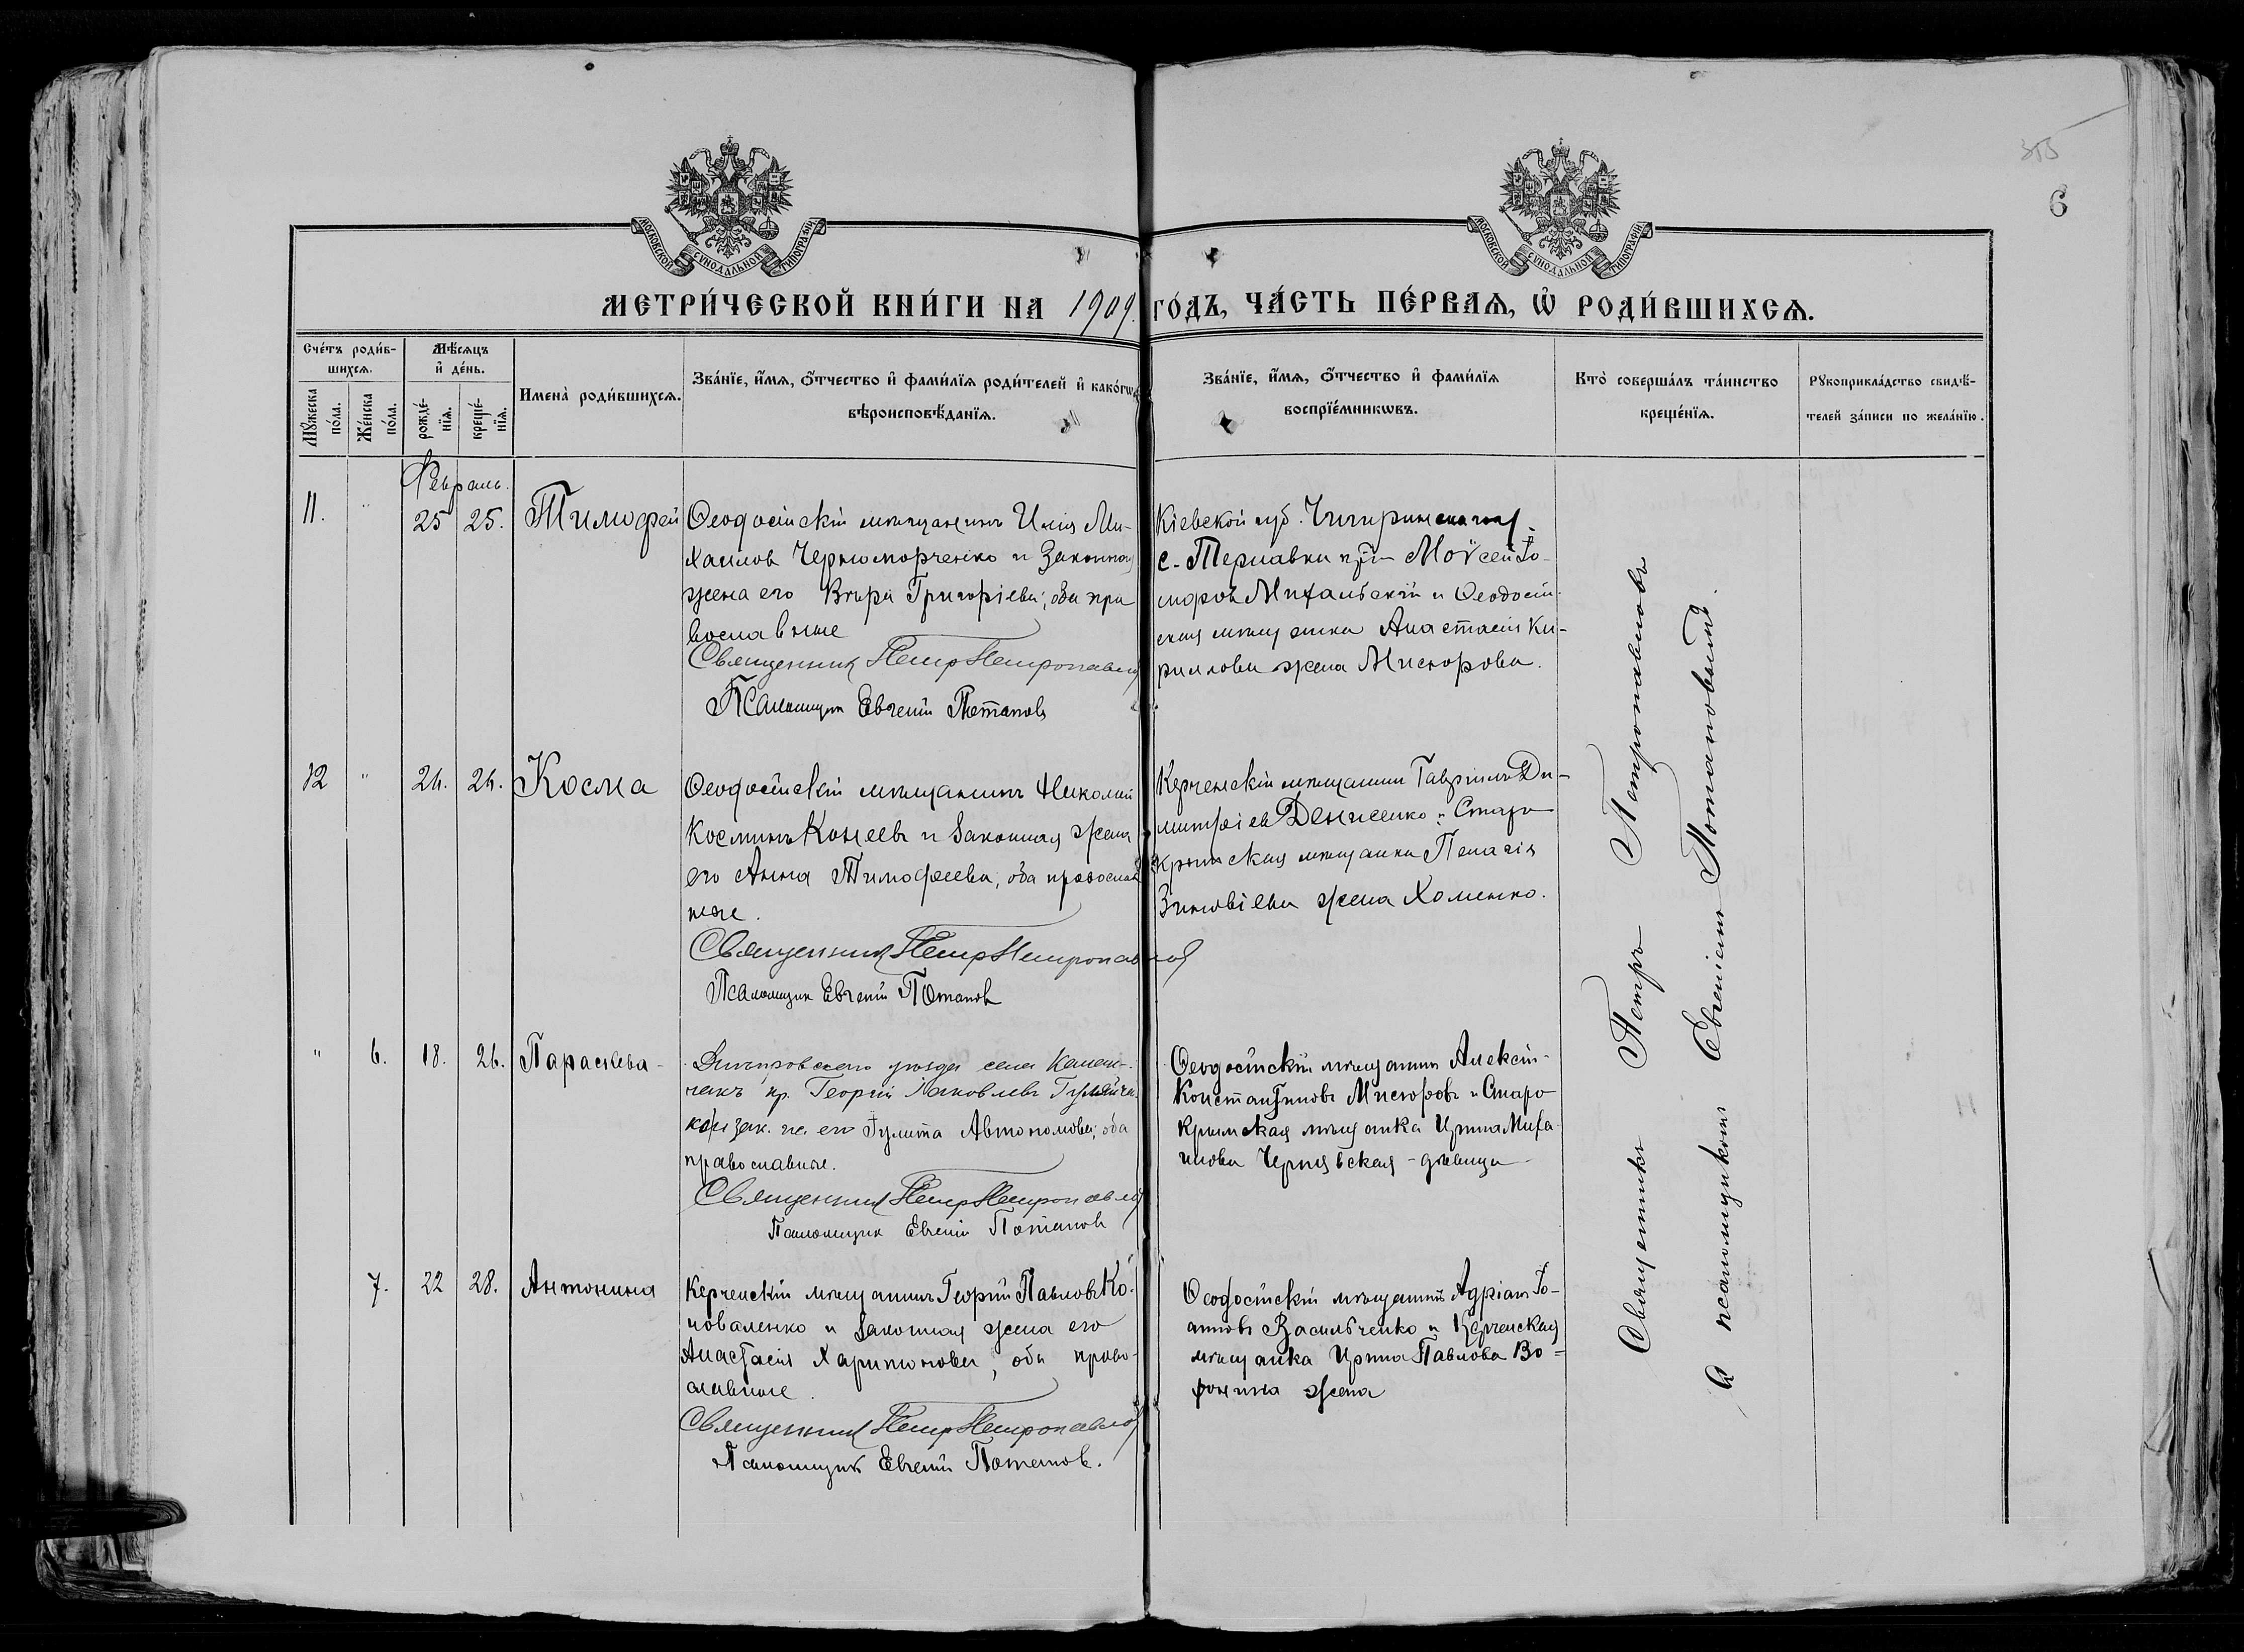 355
6
МОСКОВСКОЙ СУНОДАЛЬНОЙ ТИПОГРАФІИ
МОСКОВСКОЙ СУНОДАЛЬНОЙ ТИПОГРАФІИ
МЕТРИ́ЧЕСКОЙ КНИ́ГИ НА 1909. ГО́ДЪ, ЧА́СТЬ ПЕ́РВАѦ, Ѡ҆ РОДИ́ВШИХСѦ.
Сче́тъ роди́в-
шихсѧ.
Мꙋжеска по́ла.
Же́нска по́ла.
Мѣ́сѧцъ
и҆ де́нь.
рожде́-
нїѧ.
креще́-
нїѧ.
Имена̀ роди́вшихсѧ.
Зва́нїе, и҆́мѧ, ѻ҆́тчество и҆ фами́лїѧ роди́телей и҆ како́гѡ
вѣроисповѣ́данїѧ.
Зва́нїе, и҆́мѧ, ѻ҆́тчество и҆ фами́лїѧ
воспрїе́мникѡвъ.
Кто̀ соверша́лъ та́инство
креще́нїѧ.
Рꙋкоприкла́дство свидѣ́-
телей за́писи по жела́нїю.
Февраль.
11. " 25 25. Тимофей
Ѳеодосійскій мѣщанинъ Илія Ми-
хаиловъ Черноморченко и законная
жена его Вѣра Григоріева; оба пра
вославные
Священникъ Петръ Петропавловъ
Псаломщик Евгеній Потаповъ
Кіевской губ. Чигиринскаго у.
с. Тернавки кр. Моѵсей Ѳо-
Михальскій и Ѳеодосій-
ская мѣщанка Анастасія Ки-
риллова жена Мисюрова.
12 " 24. 26. Косма
Ѳеодосійскій мѣщанинъ Николай
Косминъ Конеевъ и законная жена
его Анна Тимофеева, оба православ
ные.
Священникъ Петръ Петропавловъ
Псаломщик Евгеній Потаповъ
Керченскій мѣщанинъ Гавріилъ Ди-
митріевъ Денисенко и Старо
крымская мѣщанка Пелагія
Зиновіева жена Хоменко.
" 6. 18. 26. Параскева-
Днѣпровского уѣзда села Калан-
чакъ кр. Георгій Іаковлевъ
зак. ж. его Іулита Автономова; оба
православные.
Священникъ Петръ Петропавловъ
Псаломщик Евгеній Потаповъ
Ѳеодосійскій мѣщанинъ Алексій
Константиновъ Мисюровъ и Старо
крымская мѣщанка Ирина Миха
илова Чернявская - дѣвица
7. 22 28. Антонина
Керченскій мѣщанинъ Георгій Павловъ Ко-
новаленко и законная жена его
Анастасія Харитонова, оба право-
славные.
Священникъ Петръ Петропавловъ
Псаломщикъ Евгеній Потаповъ.
Ѳеодосійскій мѣщанинъ Адріанъ Іо-
анновъ Васильченко и Керченская
мѣщанка Ирина Павлова Во-
ронина жена
Священникъ Петръ Петропавловъ
съ псаломщикомъ Евгеніемъ Потаповымъ.